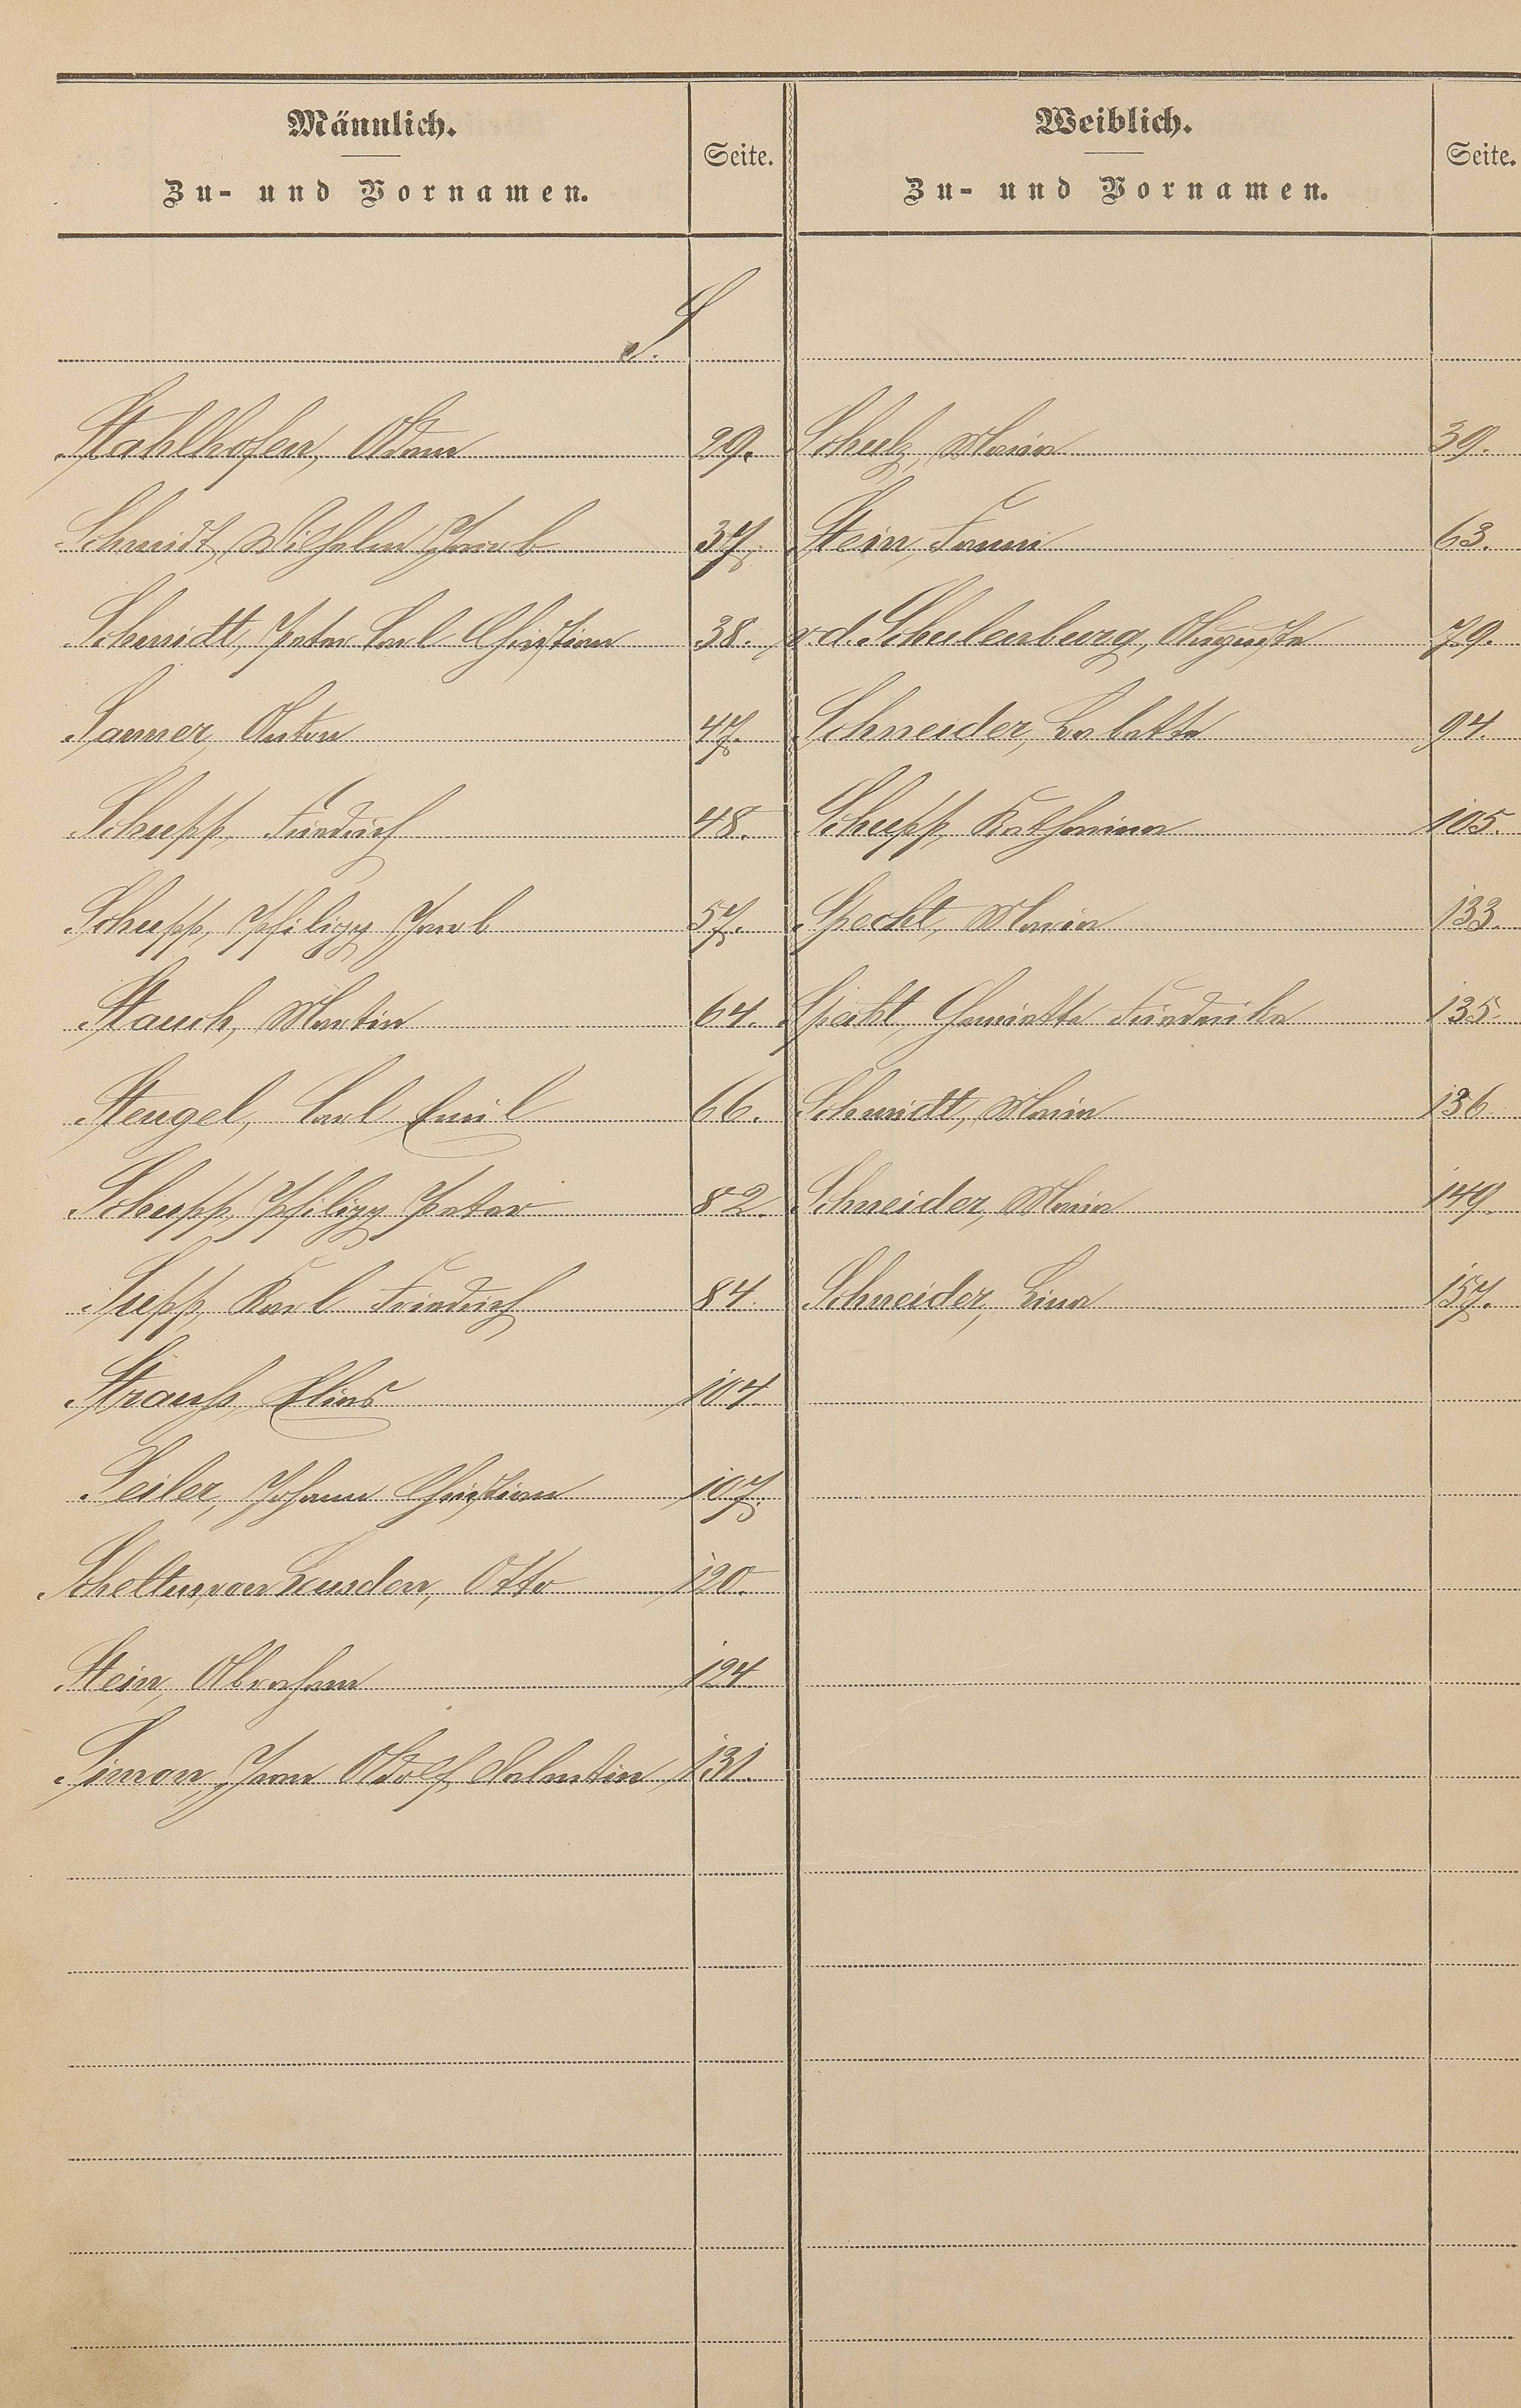 Männlich. Weiblich.
Seite. Seite.
Zu- und Vornamen. Zu- und Vornamen.
S.
Stahlhofen, Adam 29. Schulz, Maria 39.
Schmidt, Wilhelm Jacob 37. Stein, Fanni 63.
Schmidt, Peter Carl Christian 38. v. d. Schulenburg, Auguste 79.
Saemer, Anton 47. Schneider, Babette 94.
Schupp, Friedrich 48. Schupp, Katharina 105.
Schupp, Philipp Jacob 57. Specht, Maria 133.
Stauch, Martin 64. Specht, Henriette Friederike 135.
Stengel, Carl Emil 66. Schmidt, Maria 136
Schupp, Philipp Peter 82. Schneider, Maria 149.
Supp, Karl Friedrich 84. Schneider, Lina 157.
Strauß, Elias 104.
Seiler, Johann Christian 107.
Otto 120.
Stein, Abraham 124
Simon, Adolf Valentin 131.